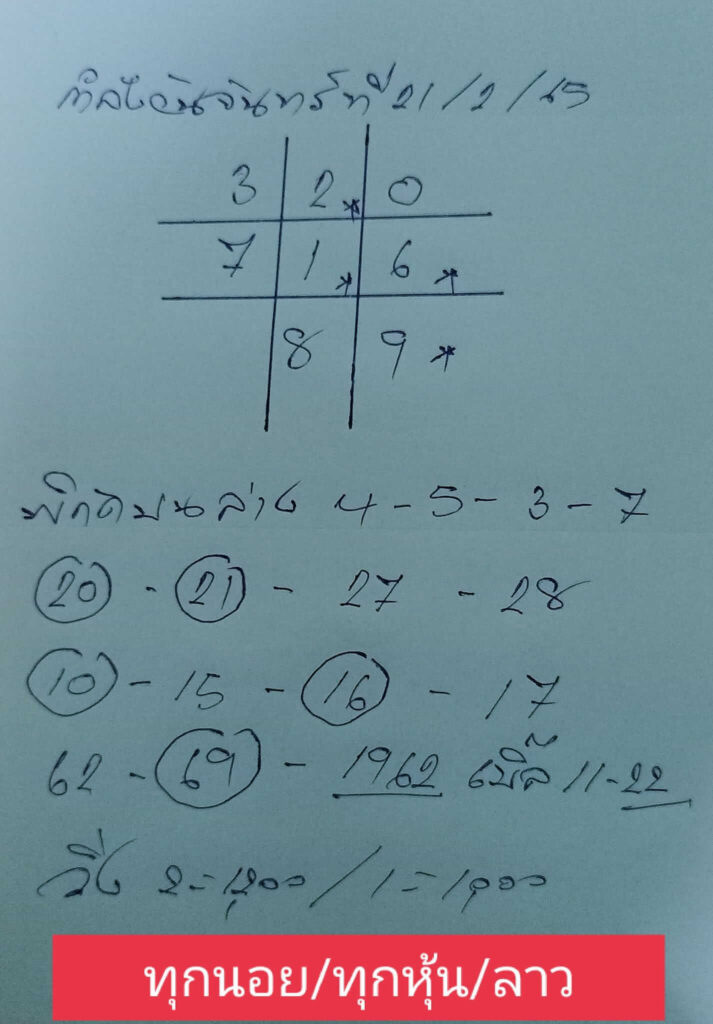 กำลังวันจันทร์ที่ 21/2/65
3 2* 0
7 1* 6*
8 9*
พิกัดบนล่าง 4-5-3-7
20 - 21 - 27 - 28
10 - 15 - 16 - 17
62 - 69 - 1962 เบิ้ล 11-22
วิ่ง
ทุกนอย/ทุกหุ้น/ลาว